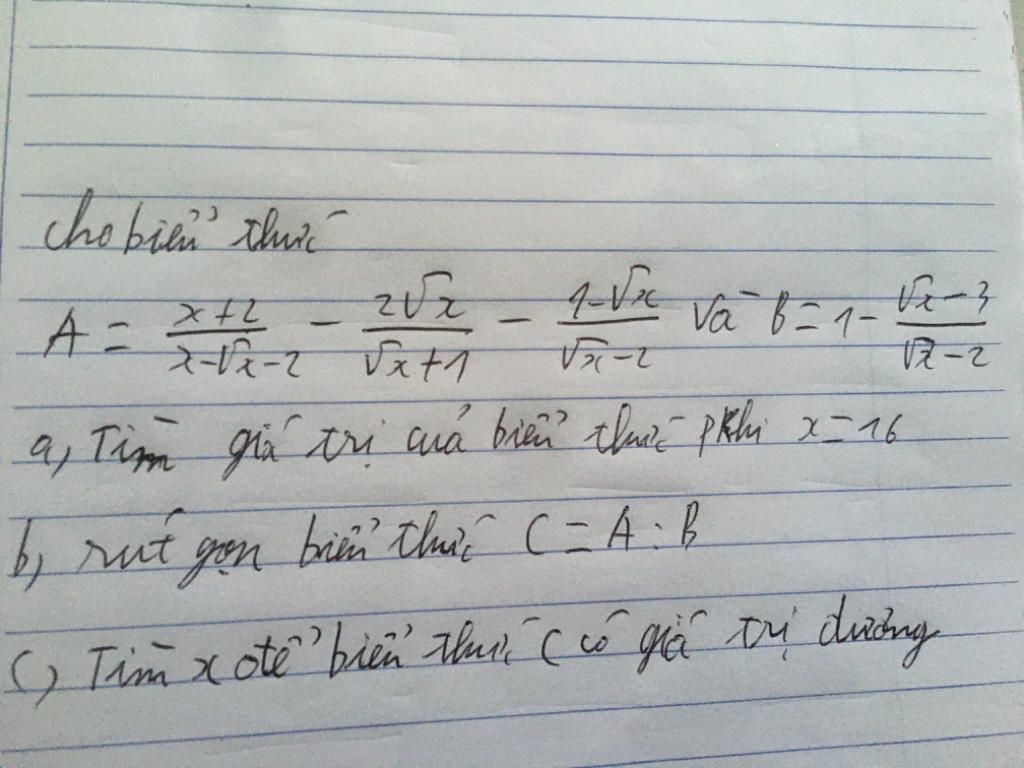 cho biểu thức
A = \frac{x+2}{x-\sqrt{x}-2} - \frac{2\sqrt{x}}{\sqrt{x}+1} - \frac{1-\sqrt{x}}{\sqrt{x}-2} và B = 1 - \frac{\sqrt{x}-3}{\sqrt{x}-2}
a, Tìm giá trị của biểu thức khi x = 16
b, rút gọn biểu thức C = A : B
c, Tìm x để biểu thức C có giá trị dương